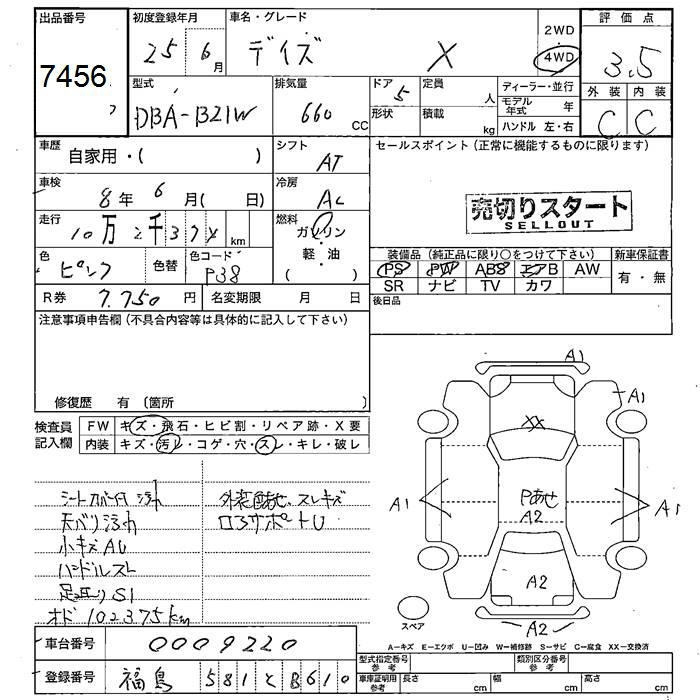 出品番号 7456
初度登録年月 25 6月
車名・グレード デイズ X
2WD
4WD
評価点 3.5
外装 内装
C C
型式 DBA-B21W
排気量 660 CC
ドア 5
形状
定員 人
積載 kg
ディーラー・並行
モデル年式 年
ハンドル 左・右
車歴 自家用・( )
シフト AT
セールスポイント (正常に機能するものに限ります)
車検 8年 6月( 日)
冷房 AC
売切りスタート
SELLOUT
走行 10万2千37X km
燃料 ガソリン・軽・油 ( )
色 ピンク
色替
色コード P38
装備品 (純正品に限り○をつけて下さい)
PS PW ABS エアB AW
SR ナビ TV カワ
新車保証書
有・無
R券 7.750 円
名変期限 月 日
後日品
注意事項申告欄 (不具合内容等は具体的に記入して下さい)
修復歴 有 (箇所 )
検査員記入欄
FW キズ・飛石・ヒビ割・リペア跡・X要
内装 キズ・汚レ・コゲ・穴・スレ・キレ・破レ
シートカバー付 汚れ
天バリ汚れ
小キズAU
ハンドルスレ
足廻りS1
オド 102375km
外装色あせ、スレキズ
ロアサポートU
A1
A1
XX
A1
Pあせ
A2
A1
A2
A2
スペア
A=キズ E=エクボ U=凹み W=補修跡 S=サビ C=腐食 XX=交換済
車台番号 0009220
登録番号 福島 581 と 8610
型式指定番号 参考
類別区分番号 参考
車庫証明用 参考
長さ cm
幅 cm
高さ cm